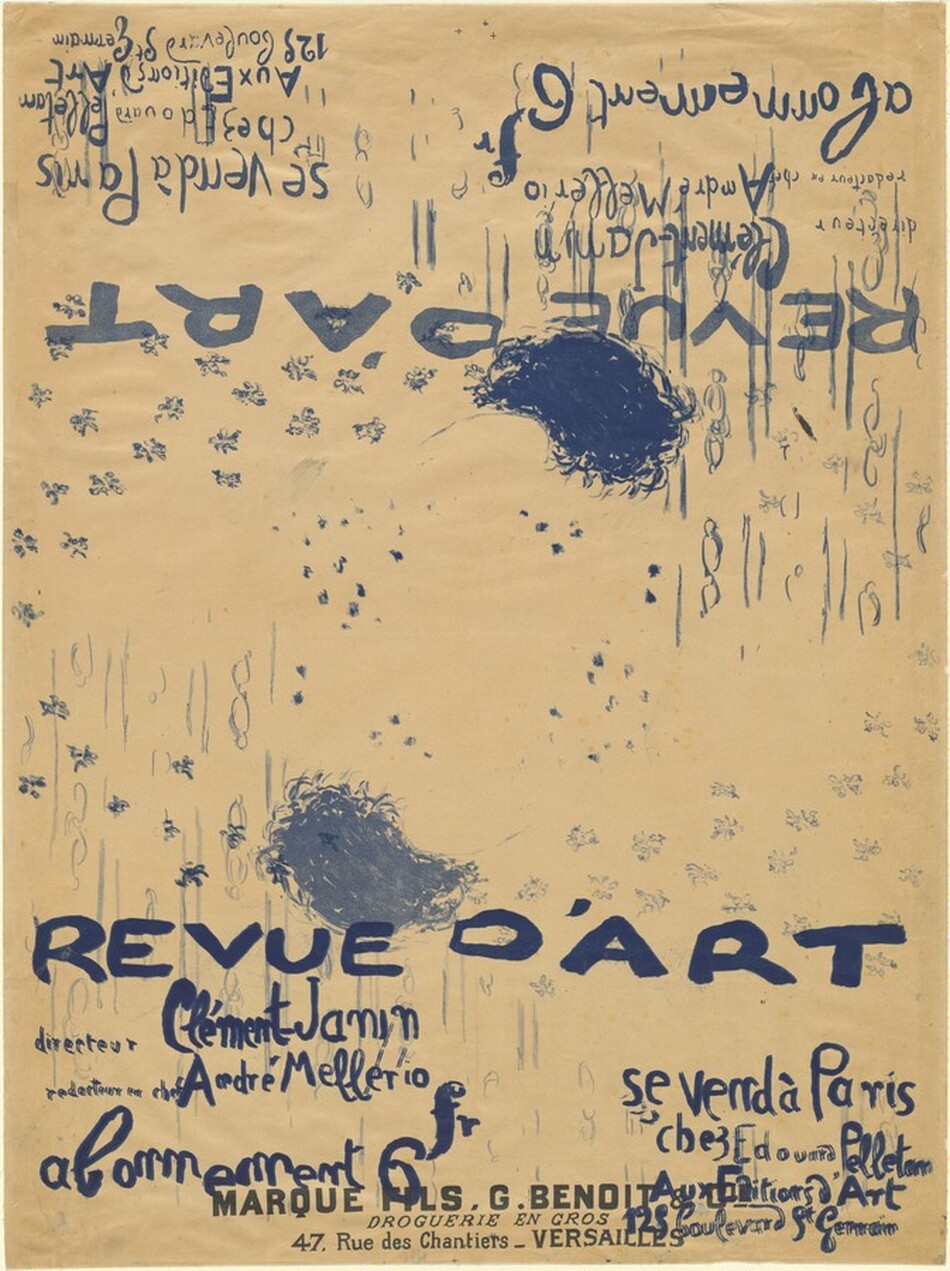 se vend à Paris
chez Edouard Pelletan
Aux Editions d'Art
125 boulevard St Germain
abonnement 6 fr
redacteur en chef André Mellério
directeur Clément-Janin
REVUE D'ART
REVUE D'ART
directeur Clément-Janin
redacteur en chef André Mellério
abonnement 6 fr
se vend à Paris
chez Edouard Pelletan
Aux Editions d'Art
125 boulevard St Germain
MARQUE FILS. G. BENOIT
DROGUERIE EN GROS
47, Rue des Chantiers _ VERSAILLES